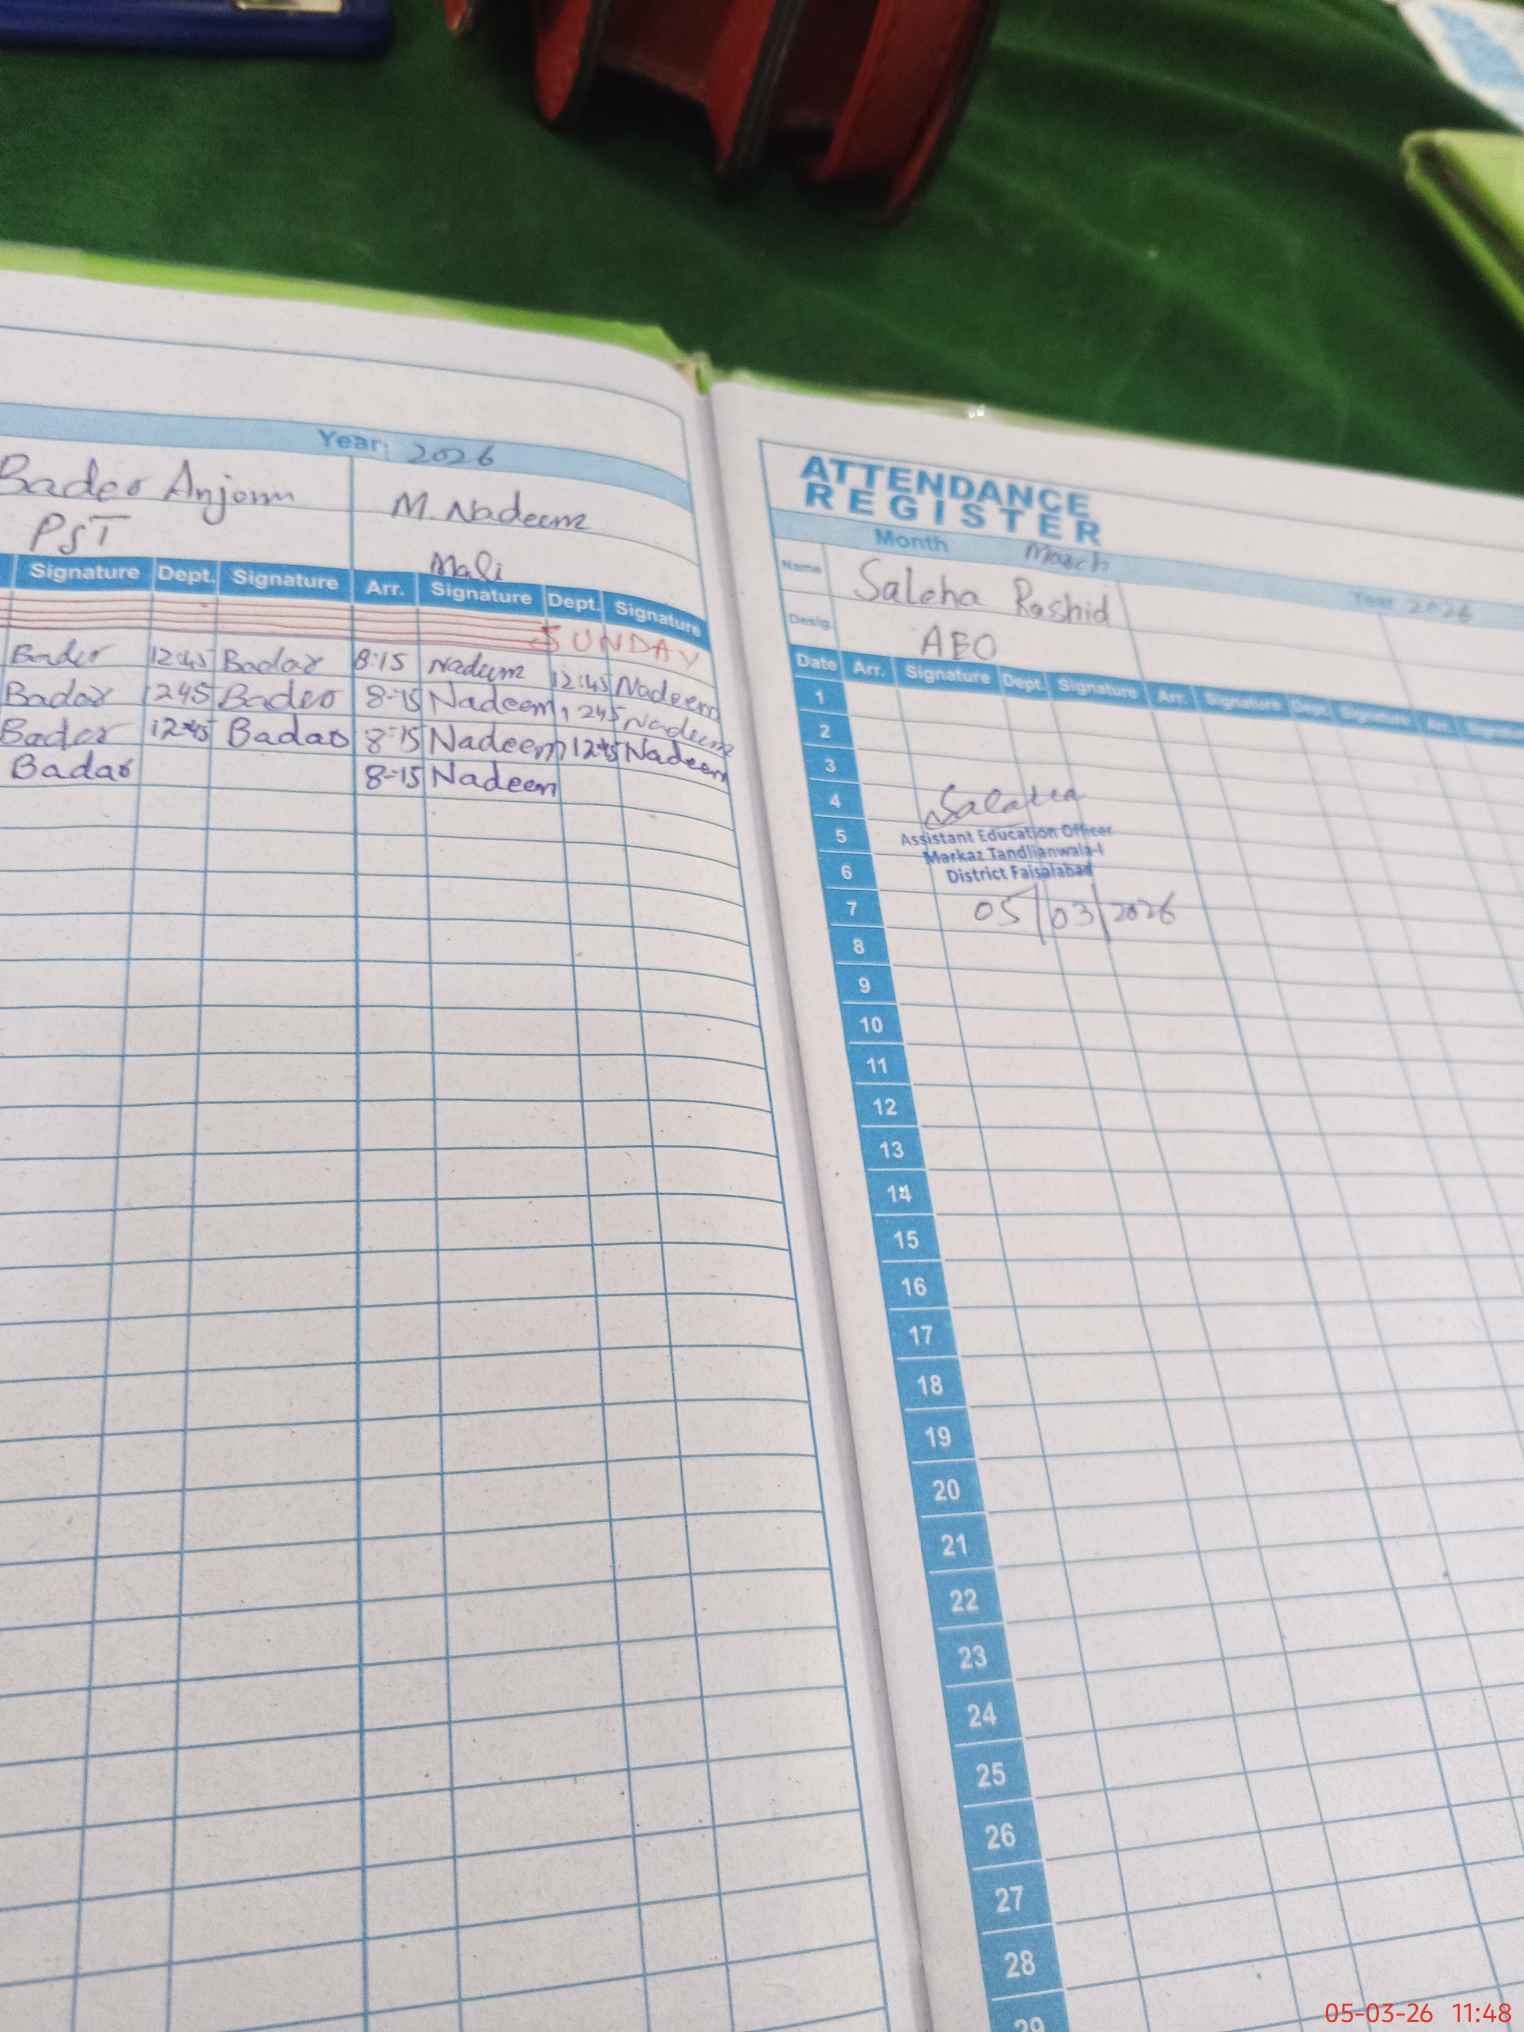 Year: 2026
Bader Anjom
M. Nadeem
PST
Mali
Signature Dept. Signature Arr. Signature Dept. Signature
SUNDAY
Bader 12:45 Badar 8:15 Nadeem 12:45 Nadeem
Badar 1245 Badeo 8-15 Nadeem 1245 Nadeem
Bader 12:45 Badao 8-15 Nadeem 12:45 Nadeem
Badao 8-15 Nadeem
ATTENDANCE
REGISTER
Month March
Year 2026
Name Saleha Rashid
Desig. AEO
Date Arr. Signature Dept. Signature Arr. Signature Dept. Signature Arr. Signature
1
2
3
4
5
6
7
8
9
10
11
12
13
14
15
16
17
18
19
20
21
22
23
24
25
26
27
28
29
Saleha
Assistant Education Officer
Markaz Tandlianwala-I
District Faisalabad
05/03/2026
05-03-26 11:48